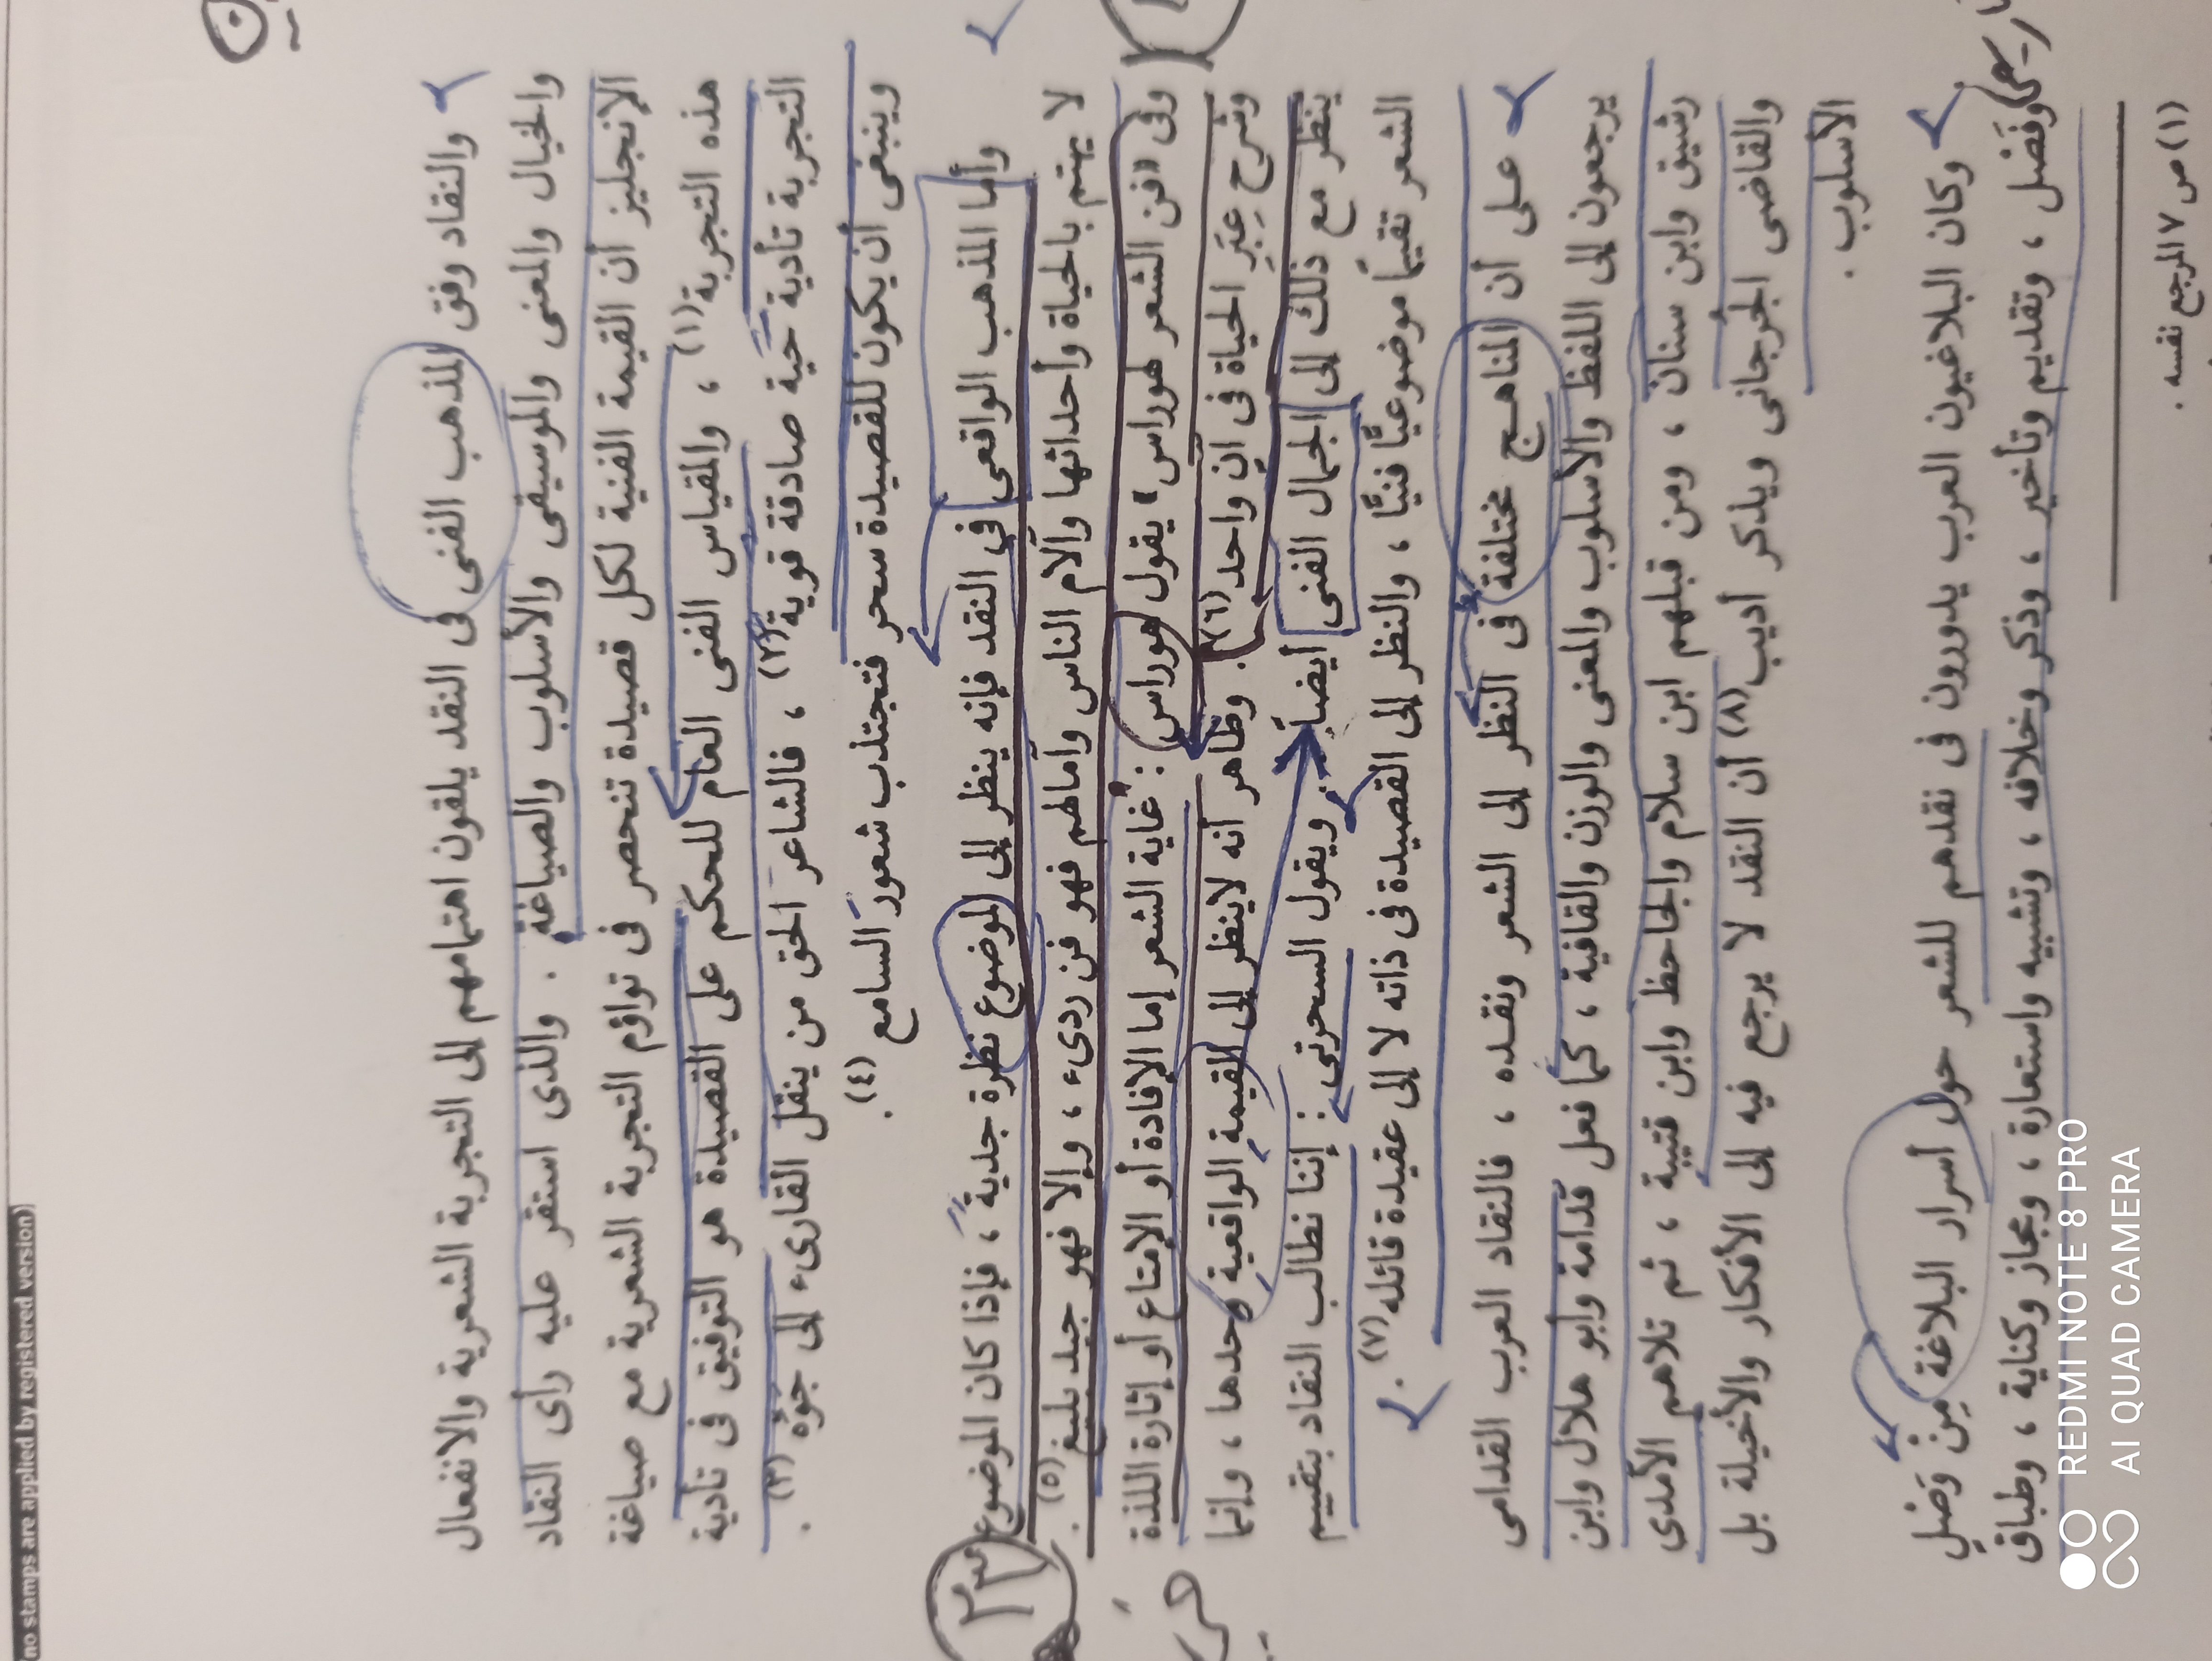 no stamps are applied by registered version)
والنقاد وفق المذهب الفنى فى النقد يلقون اهتمامهم إلى التجربة الشعرية والانفعال
والخيال والمعنى والموسيقى والأسلوب والصياغة . والذى استقر عليه رأى النقاد
الإنجليز أن القيمة الفنية لكل قصيدة تنحصر فى تواؤم التجربة الشعرية مع صياغة
هذه التجربة(١) ، والمقياس الفنى العام للحكم على القصيدة هو التوفيق فى تأدية
التجربة تأدية حية صادقة قوية(٢) ، فالشاعر الحق من ينقل القارىء إلى جَوّه (٣) .
وينبغى أن يكون للقصيدة سحر فتجتذب شعور السامع (٤) .
وأما المذهب الواقعى فى النقد فإنه ينظر إلى الموضوع نظرة جدية ، فإذا كان الموضوع
لا يهتم بالحياة وأحداثها وآلام الناس وآمالهم فهو فن ردىء ، وإلا فهو جيد بليغ (٥) .
وفى «فن الشعر لهوراس» يقول هوراس : غاية الشعر إما الإفادة أو الإمتاع أو إثارة اللذة
وشرح عِبَر الحياة فى آن واحد(٦) . وظاهر أنه لاينظر إلى القيمة الواقعية وحدها ، وإنما
ينظر مع ذلك إلى الجمال الفنى أيضاً . ويقول السحرتى : إننا نطالب النقاد بتقييم
الشعر تقييمًا موضوعيًّا فنيًّا ، والنظر إلى القصيدة فى ذاته لا إلى عقيدة قائله(٧) .
على أن المناهج مختلفة فى النظر إلى الشعر ونقده ، فالنقاد العرب القدامى
يرجعون إلى اللفظ والأسلوب والمعنى والوزن والقافية ، كما فعل قدامة وأبو هلال وابن
رشيق وابن سنان ، ومن قبلهم ابن سلام والجاحظ وابن قتيبة ، ثم تلاهم الآمدى
والقاضى الجرجانى ويذكر أديب(٨) أن النقد لا يرجع فيه إلى الأفكار والأخيلة بل
الأسلوب .
وكان البلاغيون العرب يدورون فى نقدهم للشعر حول أسرار البلاغة مِنْ وَصْلٍ
وفَصْل ، وتقديم وتأخير ، وذكر وخلافه ، وتشبيه واستعارة ، ومجاز وكناية ، وطباق
(١) ص ٧ المرجع نفسه .
٢٣
REDMI NOTE 8 PRO
AI QUAD CAMERA